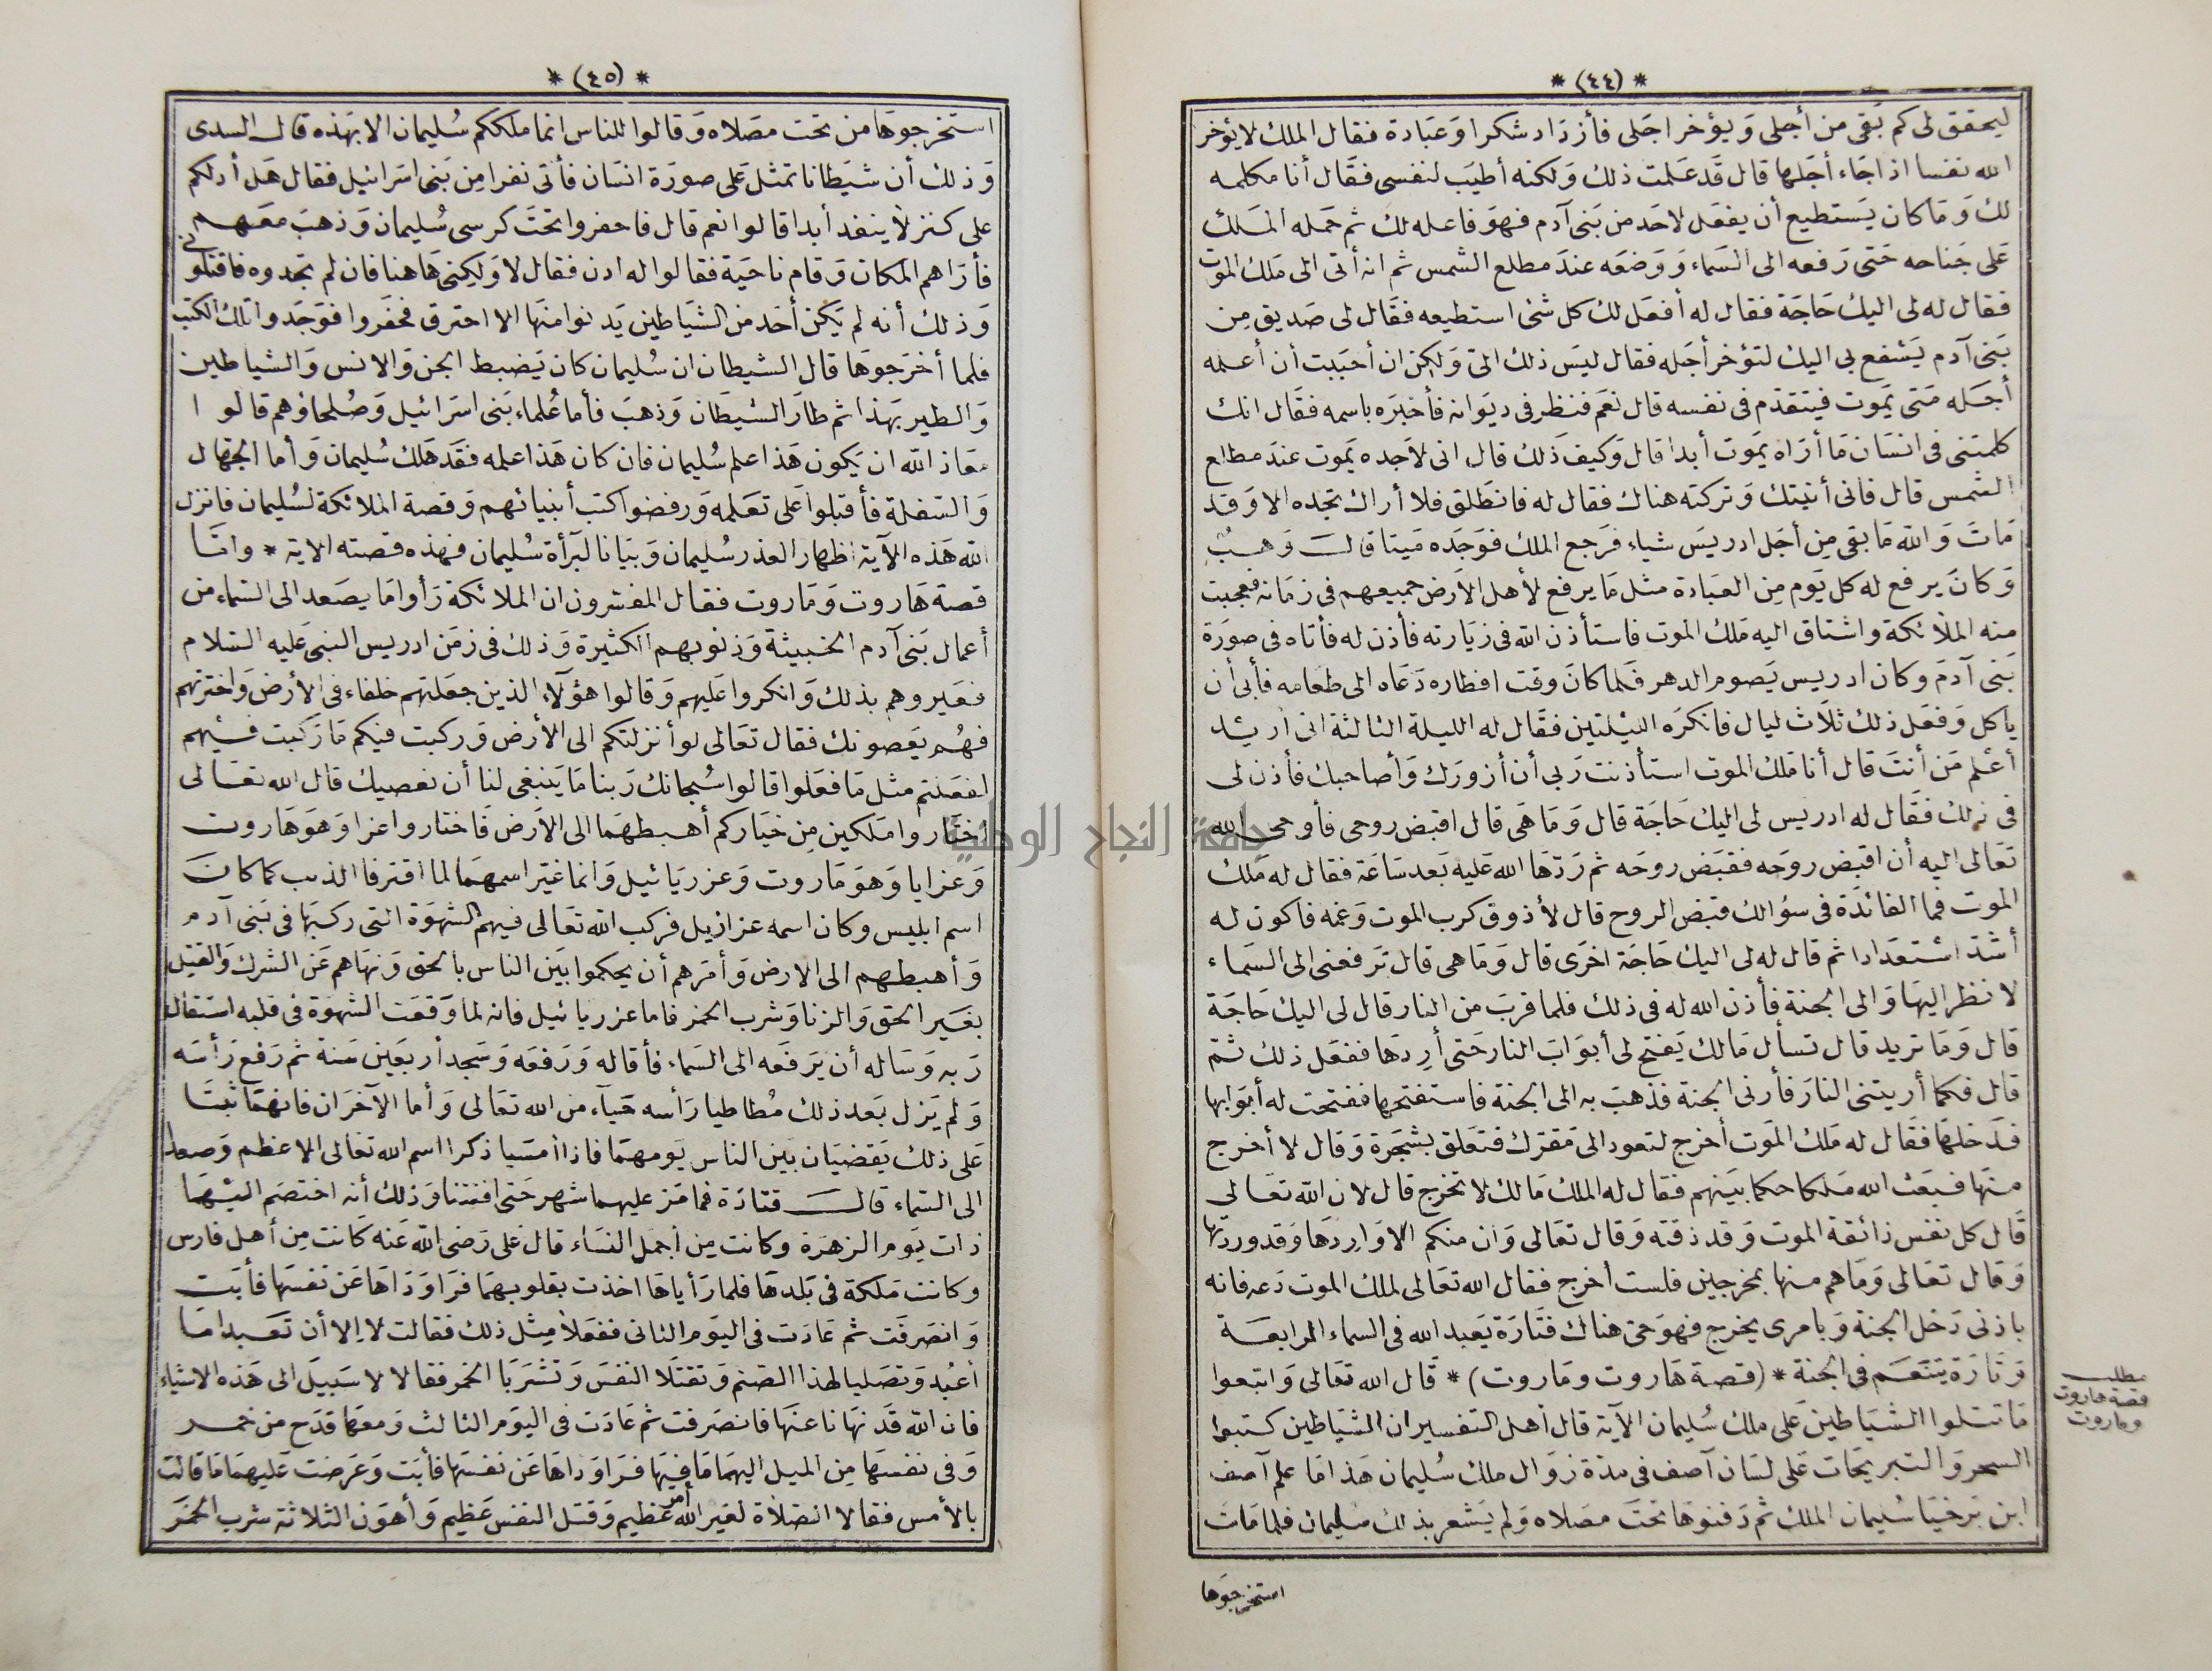 * (٤٤) *
ليحقق لى كم بقى من أجلى ويؤخر اجلى فأزداد شكرا وعبادة فقال الملك لا يؤخر
الله نفسا اذا جاء أجلها قال قد علمت ذلك ولكنه أطيب لنفسى فقال أنا مكلمه
لك وما كان يستطيع أن يفعل لاحد من بنى آدم فهو فاعله لك ثم حمله الملك
على جناحه حتى رفعه الى السماء ووضعه عند مطلع الشمس ثم انه أتى الى ملك الموت
فقال له لى اليك حاجة فقال له أفعل لك كل شئ استطيعه فقال لى صديق من
بنى آدم يشفع بى اليك لتؤخر أجله فقال ليس ذلك الىّ ولكن ان أحببت أن أعلمه
أجله متى يموت فيتقدم فى نفسه قال نعم فنظر فى ديوانه فأخبره باسمه فقال انك
كلمتنى فى انسان ما أراه يموت أبدا قال وكيف ذلك قال انى لأجده يموت عند مطلع
الشمس قال فانى أتيتك وتركته هناك فقال له فانطلق فلا أراك تجده الا وقد
مات والله ما بقى من أجل ادريس شياء فرجع الملك فوجده ميتا قال وهب
وكان يرفع له كل يوم من العبادة مثل ما يرفع لأهل الأرض جميعهم فى زمانه فعجبت
منه الملائكة واشتاق اليه ملك الموت فاستأذن الله فى زيارته فأذن له فأتاه فى صورة
بنى آدم وكان ادريس يصوم الدهر فلما كان وقت افطاره دعاه الى طعامه فأبى أن
يأكل وفعل ذلك ثلاث ليال فانكره الليلتين فقال له الليلة الثالثة انى أريد
أعلم من أنت قال أنا ملك الموت استأذنت ربى أن أزورك وأصاحبك فأذن لى
فى ذلك فقال له ادريس لى اليك حاجة قال وما هى قال اقبض روحى فأوحى الله
تعالى اليه أن اقبض روحه فقبض روحه ثم ردها الله عليه بعد ساعة فقال له ملك
الموت فما الفائدة فى سؤالك قبض الروح قال لأذوق كرب الموت وغمه فاكون له
أشد استعدادا ثم قال له لى اليك حاجة اخرى قال وما هى قال ترفعنى الى السماء
لانظر اليها والى الجنة فأذن الله له فى ذلك فلما قرب من النار قال لى اليك حاجة
قال وما تريد قال تسأل مالك يفتح لى أبواب النار حتى أردها ففعل ذلك ثم
قال فكما أريتنى النار فأرنى الجنة فذهب به الى الجنة فاستفتحها ففتحت له أبوابها
فدخلها فقال له ملك الموت أخرج لتعود الى مقرك فتعلق بشجرة وقال لا أخرج
منها فبعث الله ملكا حكما بينهم فقال له الملك مالك لا تخرج قال لان الله تعالى
قال كل نفس ذائقة الموت وقد ذقته وقال تعالى وان منكم الا واردها وقد وردتها
وقال تعالى وما هم منها بمخرجين فلست أخرج فقال الله تعالى لملك الموت دعه فانه
باذنى دخل الجنة وبامرى يخرج فهو حى هناك فتارة يعبد الله فى السماء الرابعة
وتارة يتنعم فى الجنة * (قصة هاروت وماروت) * قال الله تعالى واتبعوا
مطلب
قصة هاروت
وماروت
ما تتلوا الشياطين على ملك سليمان الآية قال أهل التفسير ان الشياطين كتبوا
السحر والتبريحات على لسان آصف فى مدة زوال ملك سليمان هذا ما علم آصف
ابن برخيا سليمان الملك ثم دفنوها تحت مصلاه ولم يشعر بذلك سليمان فلما مات
استخرجوها
* (٤٥) *
استخرجوها من تحت مصلاه وقالوا للناس انما ملككم سليمان الا بهذه قال السدى
وذلك أن شيطانا تمثل على صورة انسان فأتى نفرا من بنى اسرائيل فقال هل أدلكم
على كنز لا ينفد أبدا قالوا نعم قال فاحفروا تحت كرسى سليمان وذهب معهم
فأراهم المكان وقام ناحية فقالوا له ادن فقال لا ولكنى هاهنا فان لم تجدوه فاقتلونى
وذلك أنه لم يكن أحد من الشياطين يدنوا منها الا احترق فحفروا فوجدوا تلك الكتب
فلما أخرجوها قال الشيطان ان سليمان كان يضبط الجن والانس والشياطين
والطير بهذا ثم طار الشيطان وذهب فأما علماء بنى اسرائيل وصلحاؤهم قالوا
معاذ الله ان يكون هذا علم سليمان فان كان هذا علمه فقد هلك سليمان وأما الجهال
والسفلة فأقبلوا على تعلمه ورفضوا كتب أنبيائهم وقصة الملائكة لسليمان فانزل
الله هذه الآية اظهار العذر سليمان وبيانا لبرأة سليمان فهذه قصته الاية * وامّا
قصة هاروت وماروت فقال المفسرون ان الملائكة رأوا ما يصعد الى السماء من
أعمال بنى آدم الخبيثة وذنوبهم الكثيرة وذلك فى زمن ادريس النبى عليه السلام
فعيروهم بذلك وانكروا عليهم وقالوا هؤلاء الذين جعلتهم خلفاء فى الأرض واخترتهم
فهم يعصونك فقال تعالى لو أنزلتكم الى الأرض وركبت فيكم ما ركبت فيهم
لفعلتم مثل ما فعلوا قالوا سبحانك ربنا ما ينبغى لنا أن نعصيك قال الله تعالى
اختاروا ملكين من خياركم أهبطهما الى الأرض فاختاروا عزا وهو هاروت
وعزايا وهو ماروت وعزريائيل وانما غير اسمهما لما اقترفا الذنب كما كان
اسم ابليس وكان اسمه عزازيل فركب الله تعالى فيهم الشهوة التى ركبها فى بنى آدم
وأهبطهم الى الارض وأمرهم أن يحكموا بين الناس بالحق ونهاهم عن الشرك والقتل
بغير الحق والزنا وشرب الخمر فاما عزريائيل فانه لما وقعت الشهوة فى قلبه استقال
ربه وساله أن يرفعه الى السماء فأقاله ورفعه وسجد أربعين سنة ثم رفع رأسه
ولم يزل بعد ذلك مطاطيا رأسه حياء من الله تعالى وأما الآخران فانهما ثبتا
على ذلك يقضيان بين الناس يومهما فاذا أمسيا ذكرا اسم الله تعالى الاعظم وصعدا
الى السماء قال قتادة فما مر عليهما شهر حتى افتتنا وذلك أنه اختصم اليهما
ذات يوم الزهرة وكانت من أجمل النساء قال على رضى الله عنه كانت من أهل فارس
وكانت ملكة فى بلدها فلما رأياها اخذت بقلوبهما فراوداها عن نفسها فأبت
وانصرفت ثم عادت فى اليوم الثانى ففعلا مثل ذلك فقالت لا إلا أن تعبدا ما
أعبد وتصليا لهذا الصنم وتقتلا النفس وتشربا الخمر فقالا لا سبيل الى هذه الاشياء
فان الله قد نهانا عنها فانصرفت ثم عادت فى اليوم الثالث ومعها قدح من خمر
وفى نفسها من الميل اليهما ما فيها فراوداها عن نفسها فأبت وعرضت عليهما ما قالت
بالأمس فقالا الصلاة لغير الله أمر عظيم وقتل النفس عظيم وأهون الثلاثة شرب الخمر
جامعة النجاح الوطنية